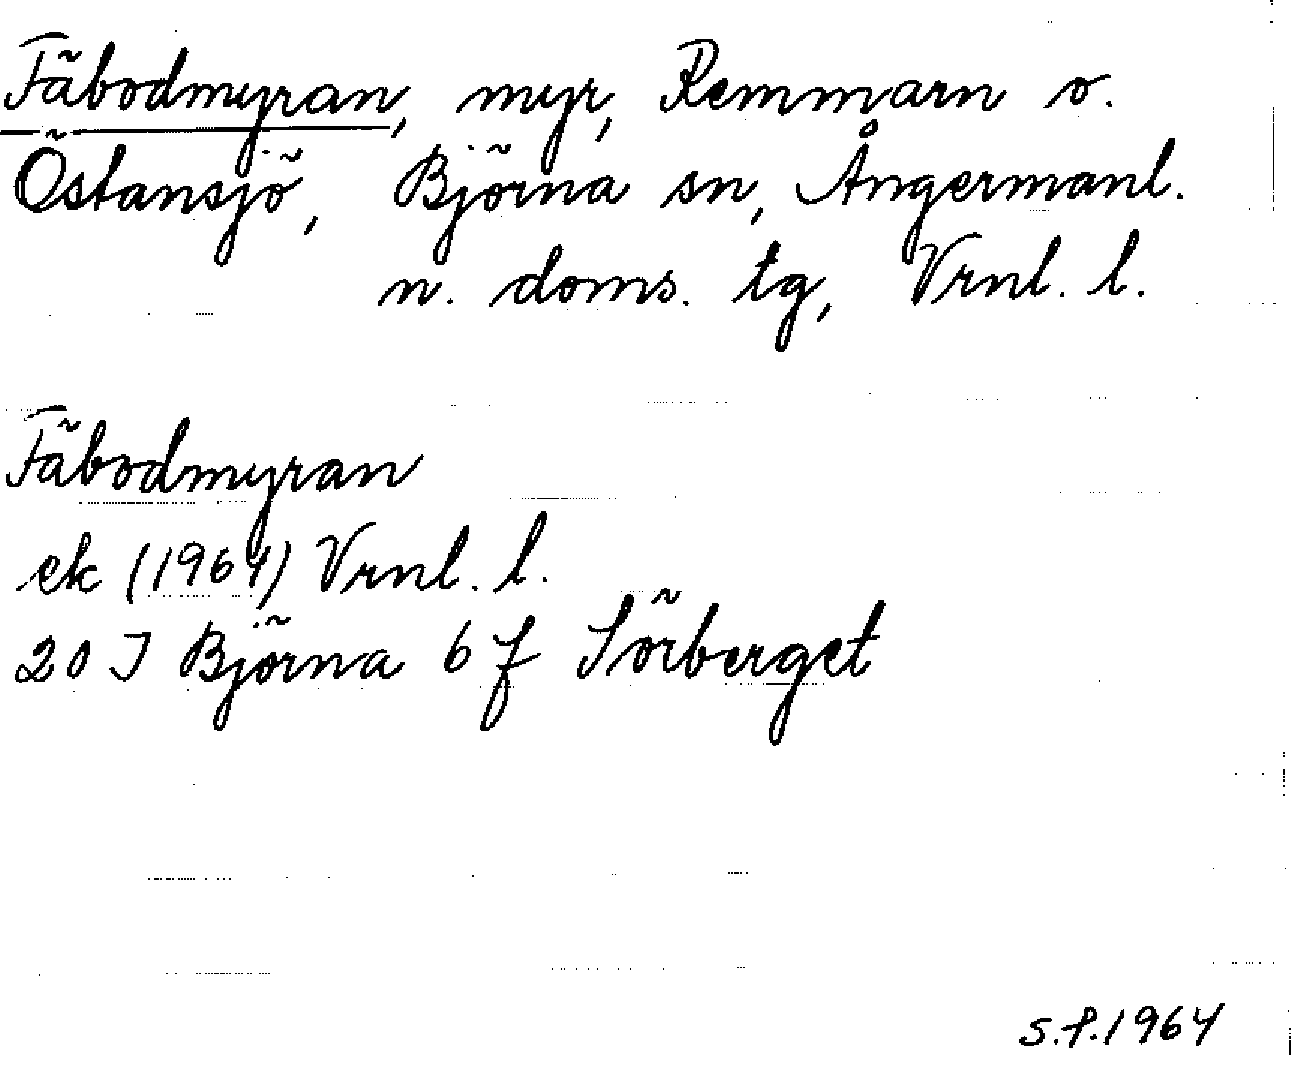 Fäbodmyran, myr, Remmarn o.
Östansjö, Björna sn, Ångermanl.
n. doms. tg, Vrnl. l.
Fäbodmyran
ek (1964) Vrnl. l.
20 J Björna 6 f Sörberget
S.f. 1964